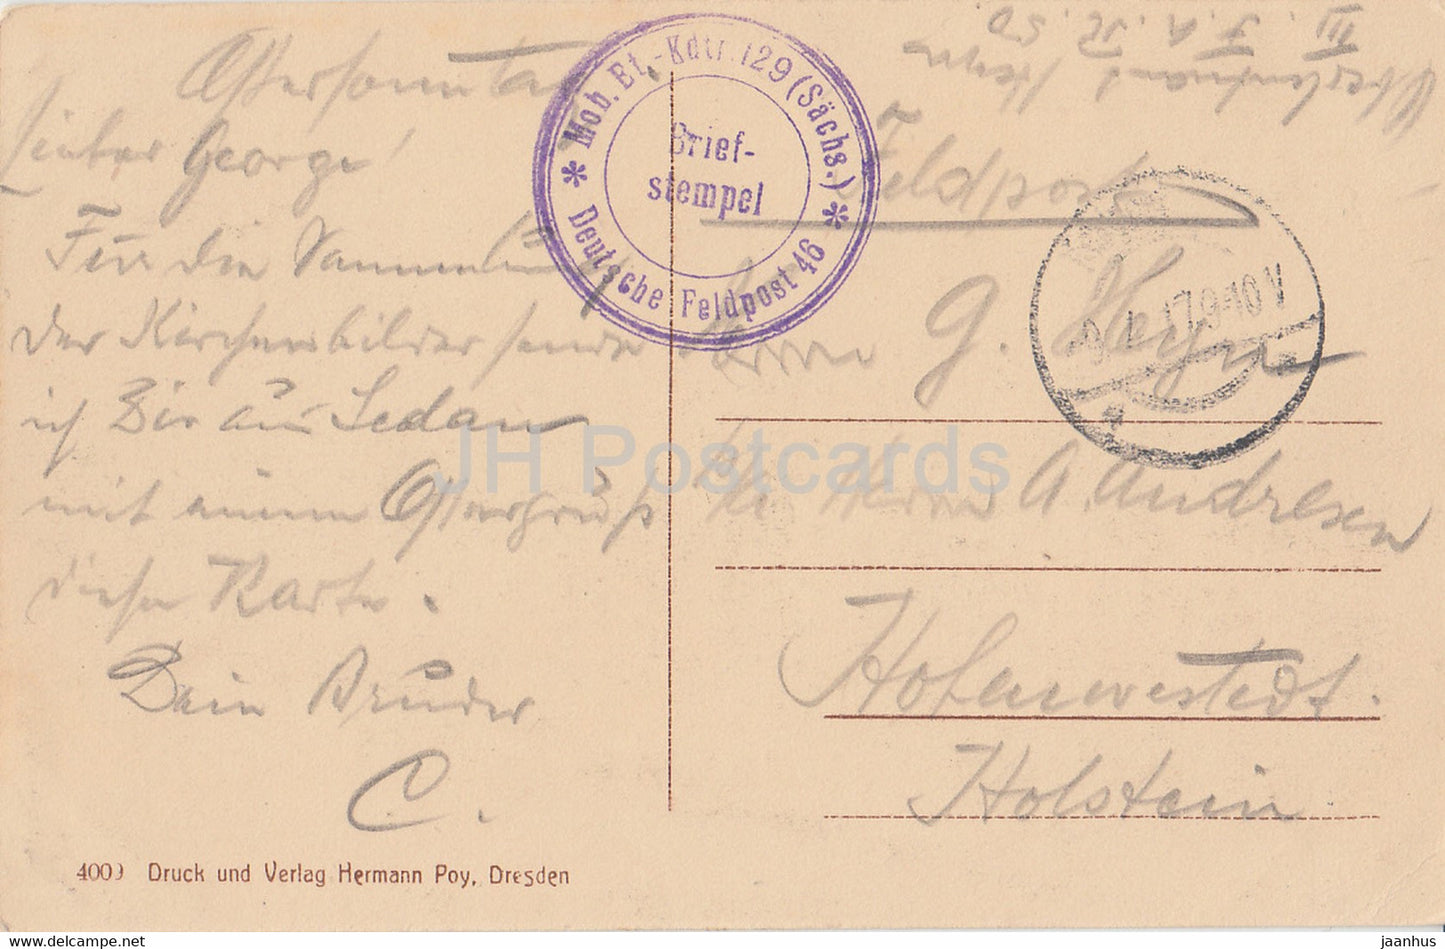 Ostersonntag
Lieber George!
Für die Sammlung
der Kirchenbilder sende
ich Dir aus Sedan
mit einem Ostergruß
diese Karte.
Dein Bruder
C.
4009 Druck und Verlag Hermann Poy, Dresden
* Mob. Et.-Kdtr. 129 (Sächs.) *
Deutsche Feldpost 46
Brief-
stempel
III. F. A. R. 50
Feldpost
Herrn G. Heyn
Herrn A. Andresen
Hohenwestedt.
Holstein
17 9-10 V
JH Postcards
www.delcampe.net
jaanhus